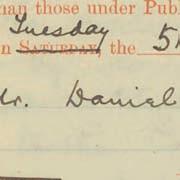 han those under Publ
Tuesday
n SATURDAY, the 5
Mr. Daniel